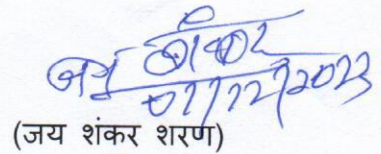 जय शंकर
07/12/2023
(जय शंकर शरण)